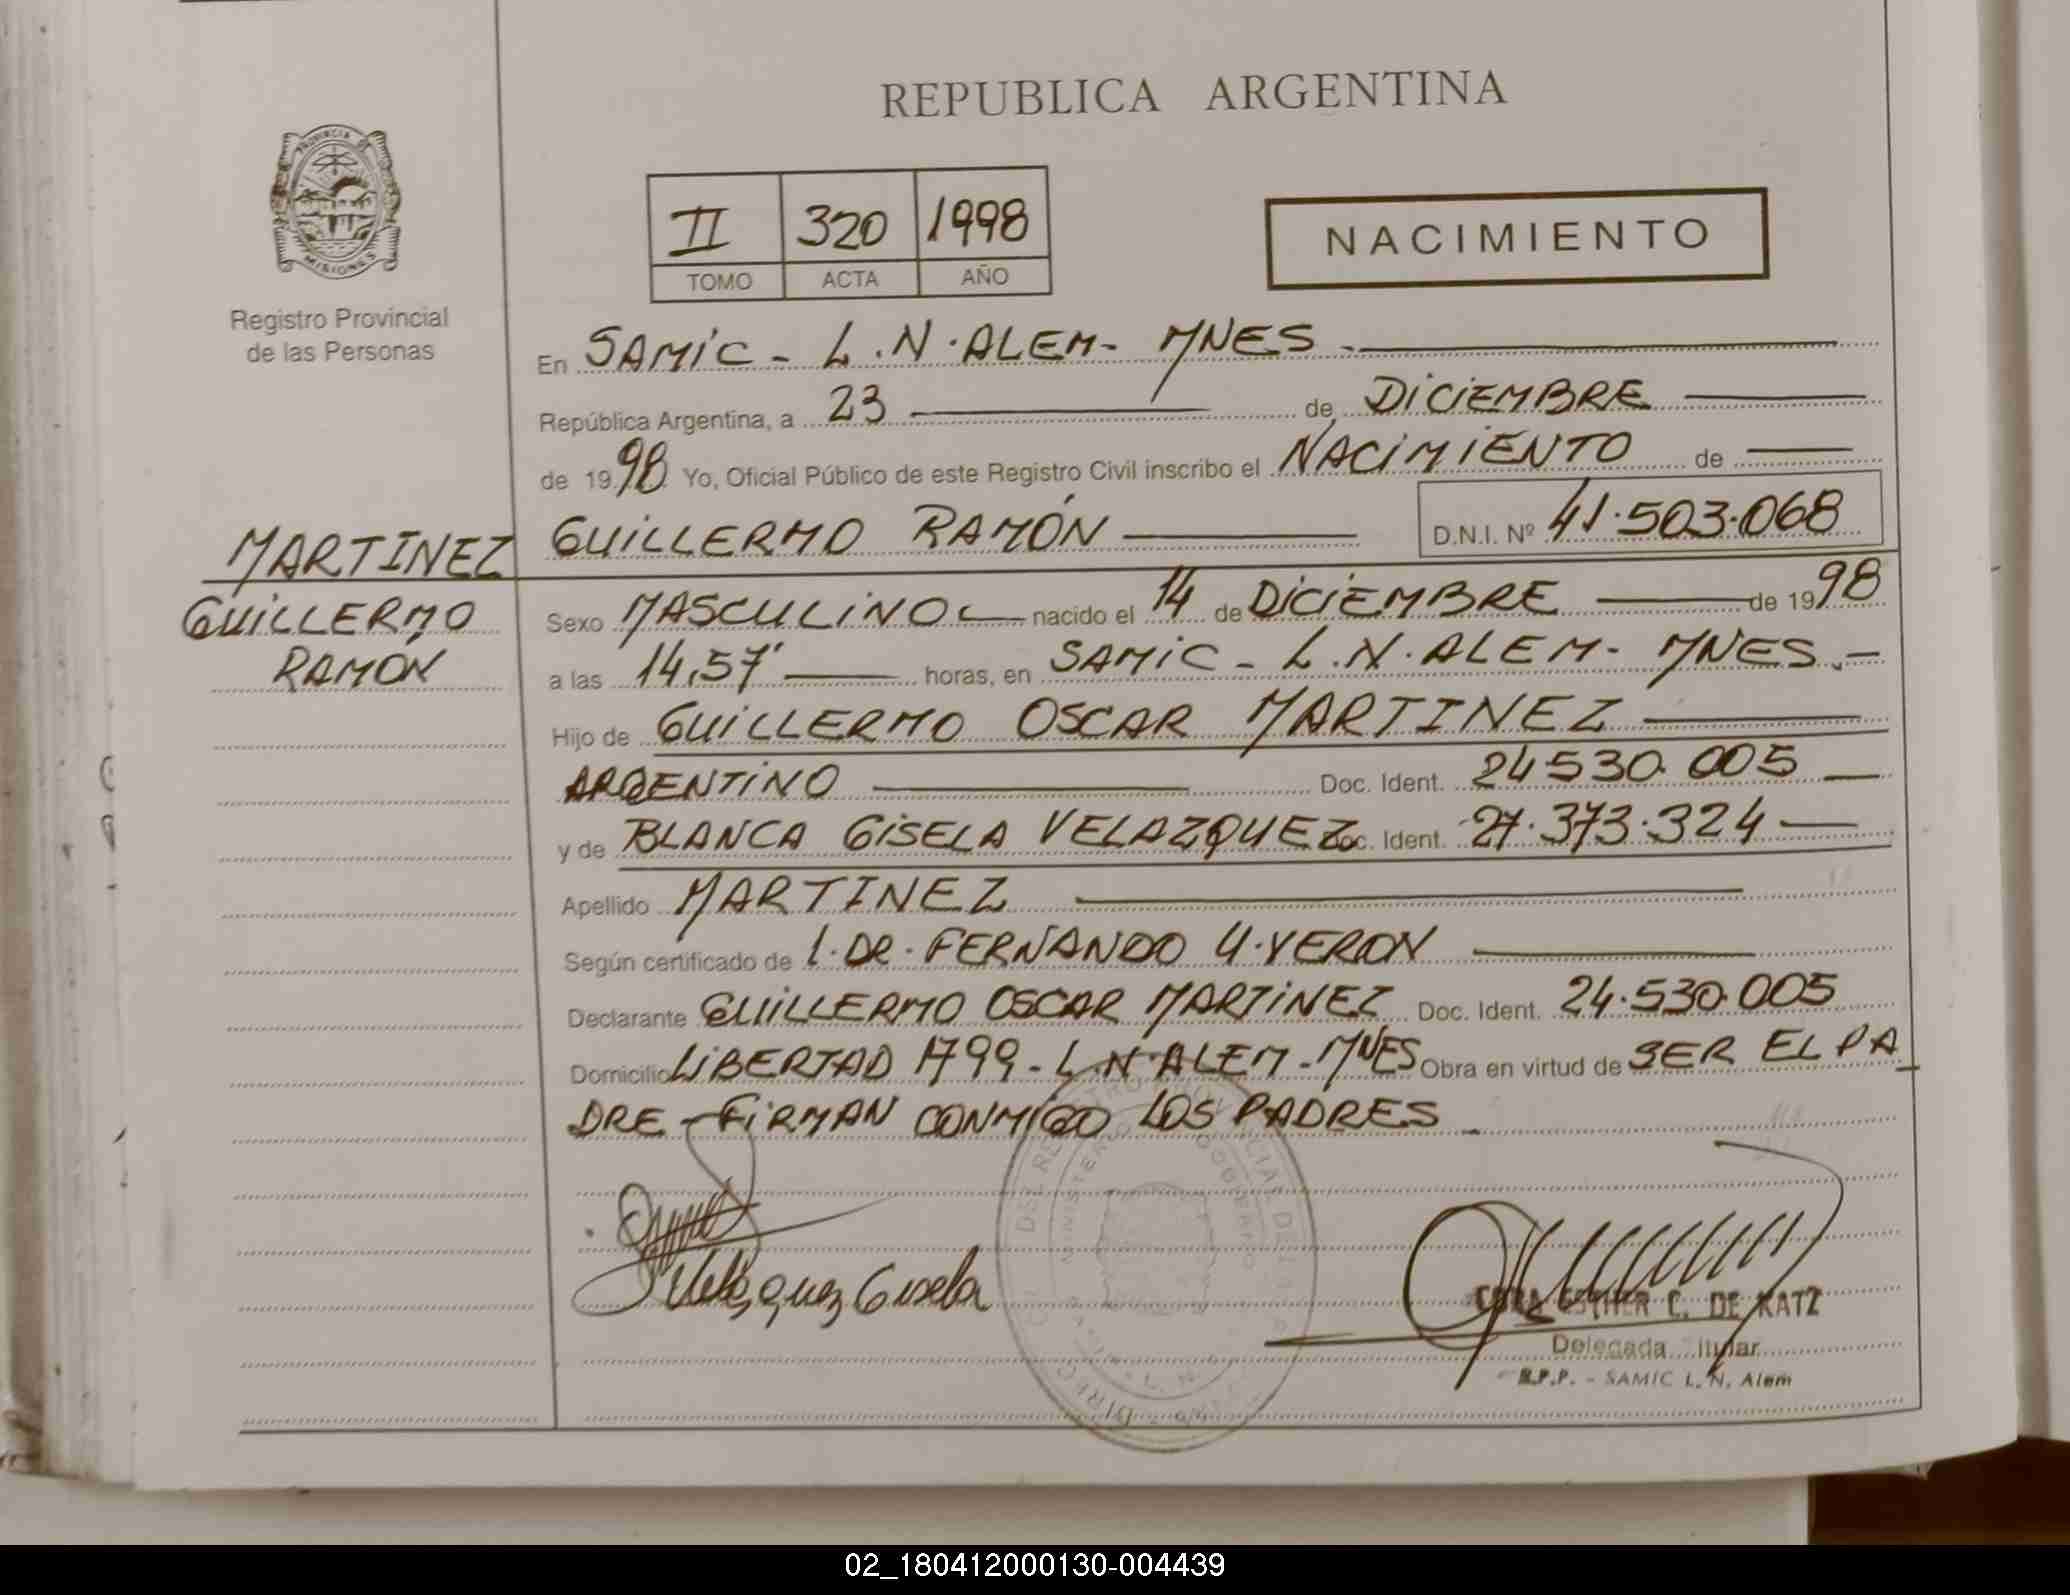 REPUBLICA ARGENTINA
PROVINCIA DE MISIONES
Registro Provincial
de las Personas
II 320 1998
TOMO ACTA AÑO
NACIMIENTO
En SAMIC - L.N. ALEM - MNES -
República Argentina, a 23 de DICIEMBRE
de 1998 Yo, Oficial Público de este Registro Civil inscribo el NACIMIENTO de
MARTINEZ
GUILLERMO
RAMÓN
GUILLERMO RAMÓN D.N.I. Nº 41.503.068
Sexo MASCULINO nacido el 14 de DICIEMBRE de 1998
a las 14,57' horas, en SAMIC - L.N. ALEM - MNES.-
Hijo de GUILLERMO OSCAR MARTINEZ
ARGENTINO Doc. Ident. 24530.005
y de BLANCA GISELA VELAZQUEZ Doc. Ident. 27.373.324
Apellido MARTINEZ
Según certificado de DR. FERNANDO YERON
Declarante GUILLERMO OSCAR MARTINEZ Doc. Ident. 24.530.005
Domicilio LIBERTAD 1799 - L.N. ALEM - MNES Obra en virtud de SER EL PA
DRE - FIRMAN CONMIGO LOS PADRES
Velazquez Gisela
ESTHER C. DE KATZ
Delegada Titular
R.P.P. - SAMIC L. N. Alem
02_180412000130-004439